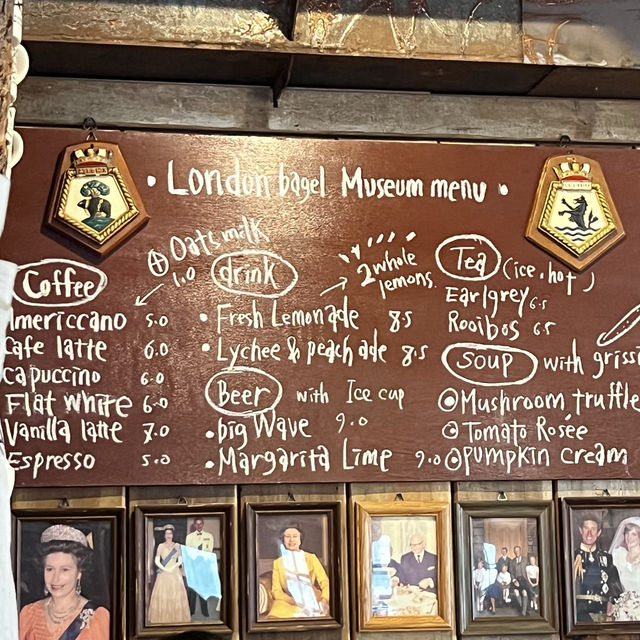 • London bagel Museum menu •
⊕ Oats milk
1.0
Coffee
Americcano 5.0
Cafe latte 6.0
Capuccino 6.0
Flat white 6.0
Vanilla latte 7.0
Espresso 5.0
drink
2 whole
lemons.
• Fresh Lemonade 8.5
• Lychee & peach ade 8.5
Beer with Ice cup
• big Wave 9.0
• Margarita Lime 9.0
Tea (ice, hot)
Earlgrey 6.5
Rooibos 6.5
Soup with grissi
Mushroom truffle
Tomato Rosée
pumpkin cream